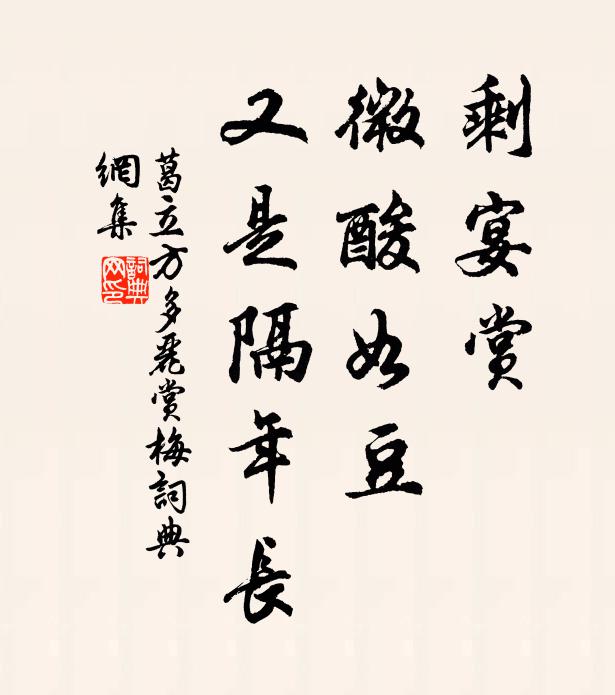 剩宴赏
微酸如豆
又是隔年長
葛立方多麗赏梅詞典
網集
詞典
网印